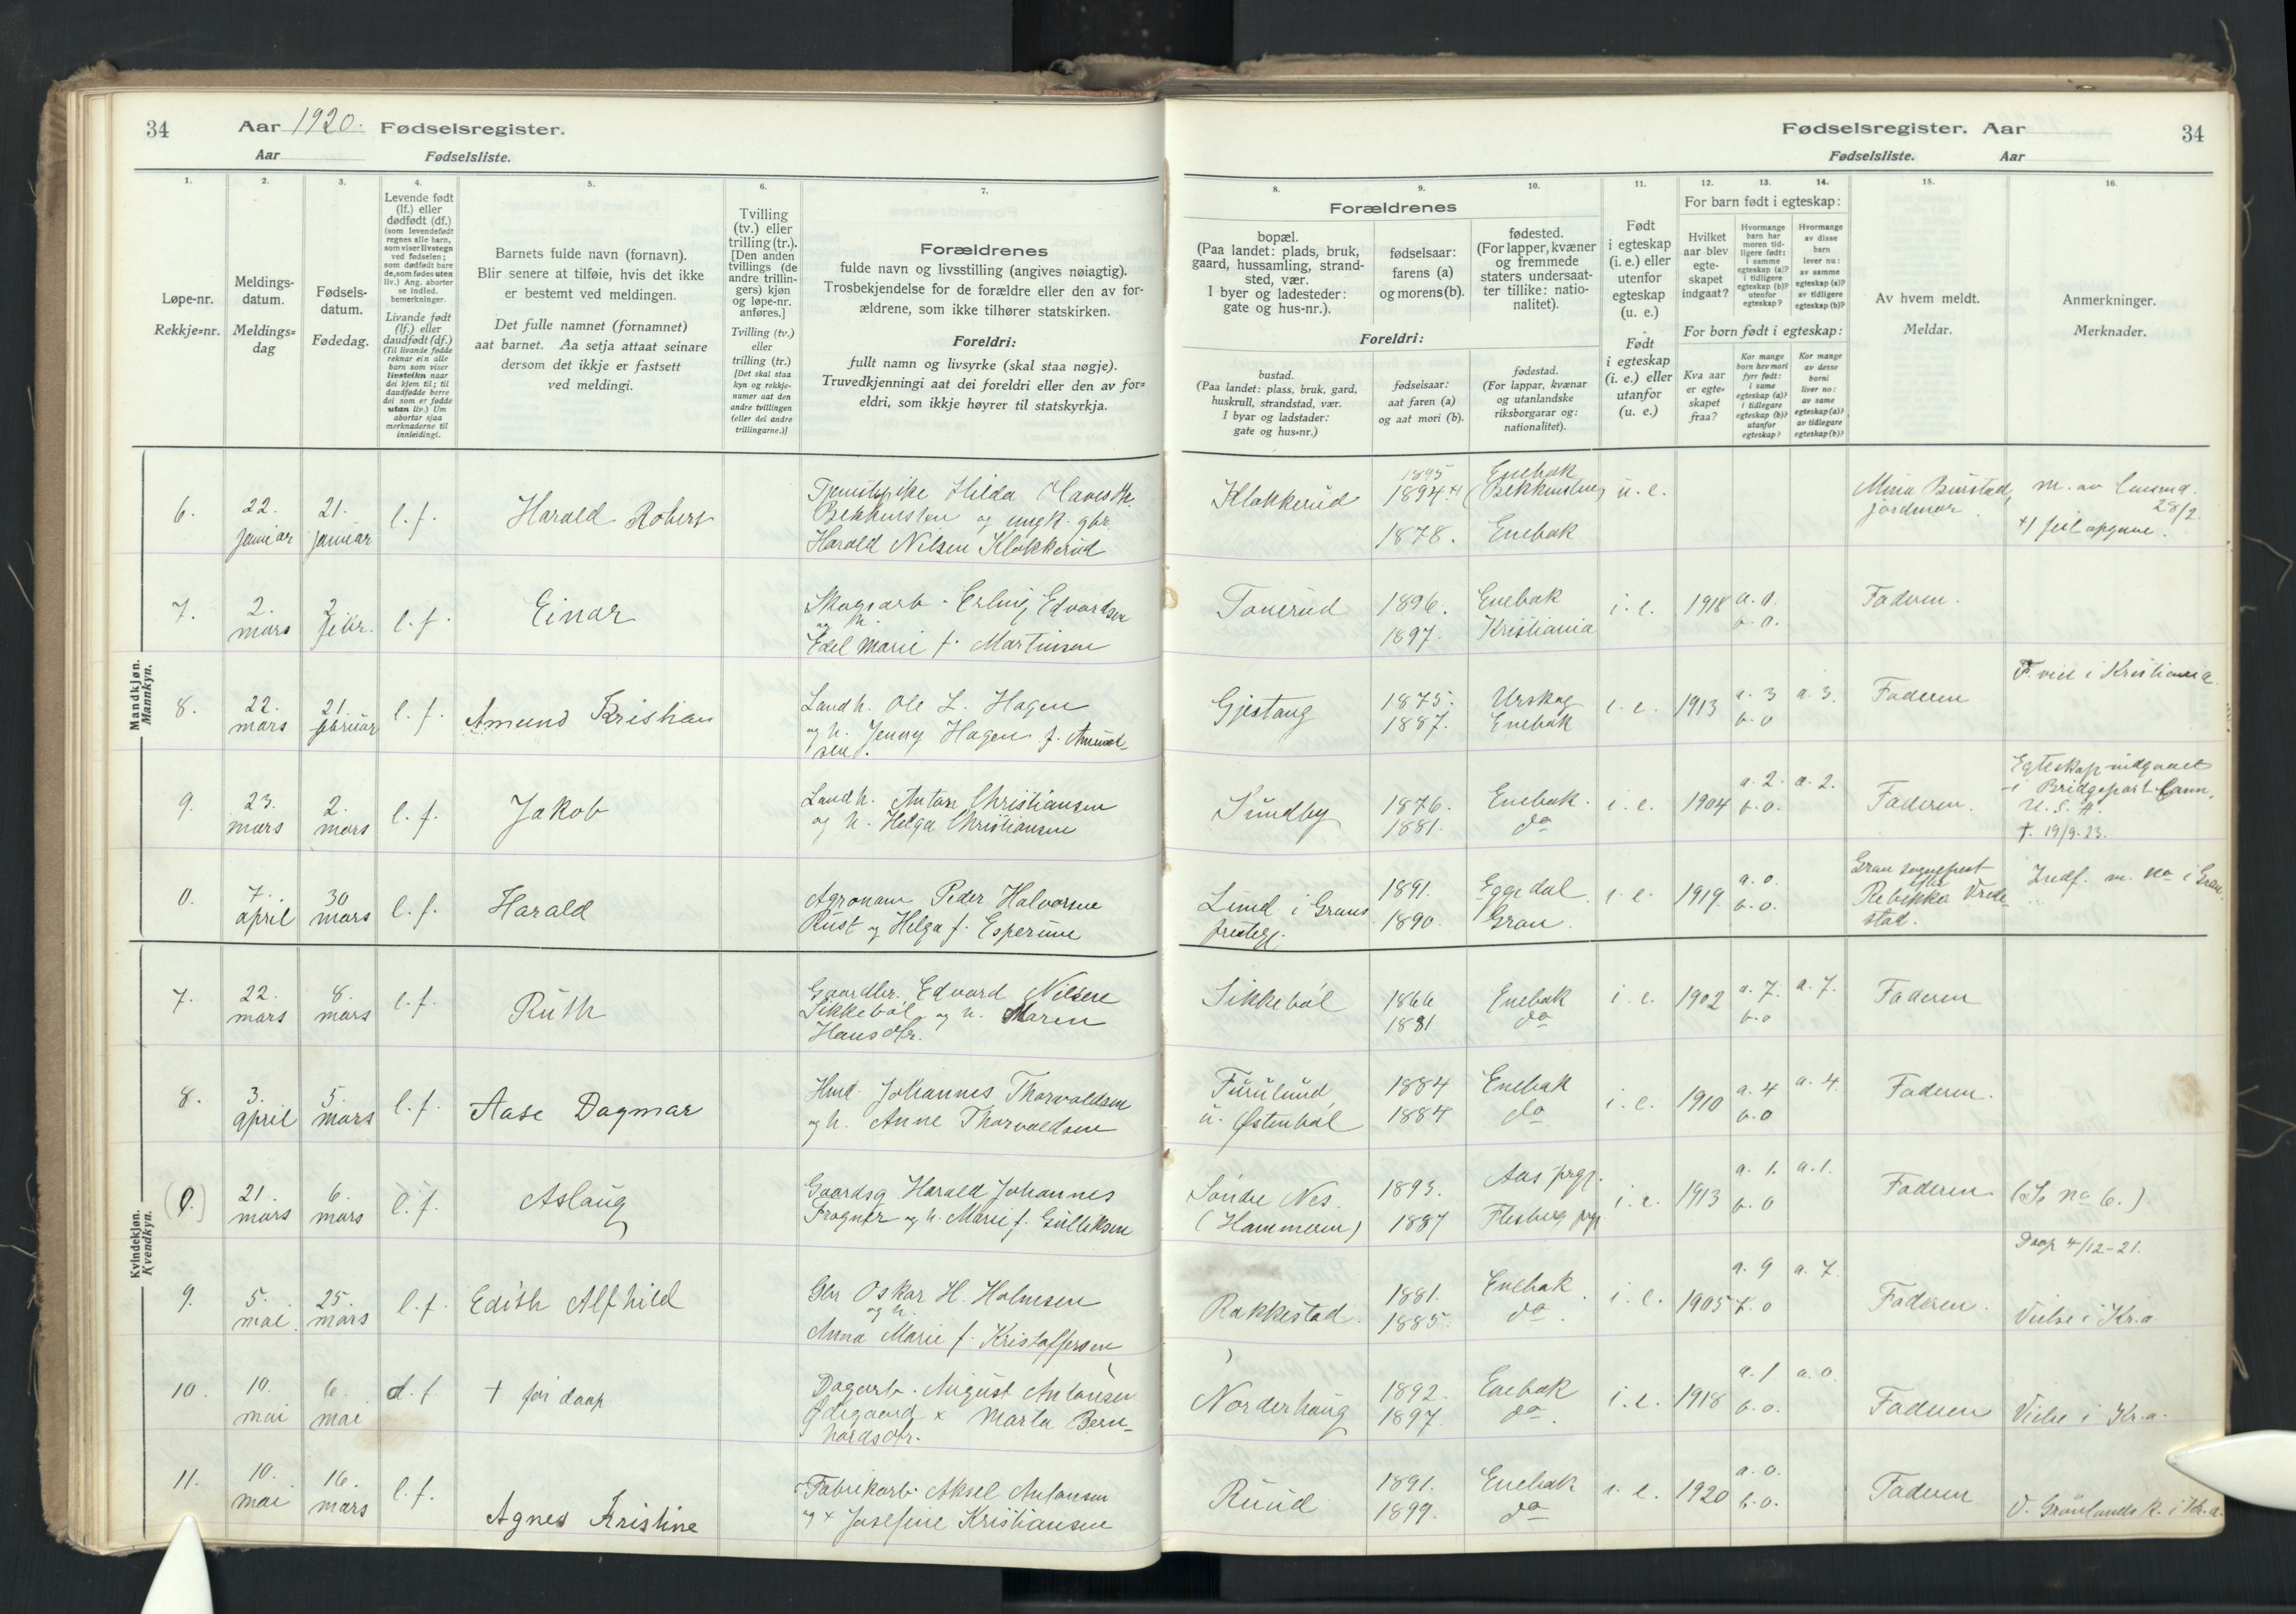 34
Aar 1920. Fødselsregister.
Aar
Fødselsliste.
Fødselsregister. Aar
34
Fødselsliste.
Aar
1.
Løpe-nr.
Rekkje=nr.
2.
Meldings-
datum.
Meldings=
dag
3.
Fødsels-
datum.
Fødedag.
4.
Levende født
(lf.) eller
dødfødt (df.)
(som levendefødt
regnes alle barn,
som viser livstegn
ved fødselen;
som dødfødt bare
de, som fødes uten
liv.) Ang. aborter
se indled.
bemerkninger.
Livande født
(lf.) eller
daudfødt (df.)
(Til livande fødde
reknar ein alle
barn som viser
livsteikn naar
dei kjem til; til
daudfødde berre
dei som er fødde
utan liv.) Um
abortar sjaa
merknaderne til
innleidingi.
5.
Barnets fulde navn (fornavn).
Blir senere at tilføie, hvis det ikke
er bestemt ved meldingen.
Det fulle namnet (fornamnet)
aat barnet. Aa setja attaat seinare
dersom det ikkje er fastsett
ved meldingi.
6.
Tvilling
(tv.) eller
trilling (tr.).
[Den anden
tvillings (de
andre trillin-
gers) kjøn
og løpe-nr.
anføres.]
Tvilling (tv.)
eller
trilling (tr.)
[Det skal staa
kyn og rekkje-
numer aat den
andre tvillingen
(eller dei andre
trillingarne.)]
7.
Forældrenes
fulde navn og livsstilling (angives nøiagtig).
Trosbekjendelse for de forældre eller den av for-
ældrene, som ikke tilhører statskirken.
Foreldri:
fullt namn og livsyrke (skal staa nøgje).
Truvedkjenningi aat dei foreldri eller den av for=
eldri, som ikkje høyrer til statskyrkja.
Forældrenes
8.
bopæl.
(Paa landet: plads, bruk,
gaard, hussamling, strand-
sted, vær.
I byer og ladesteder:
gate og hus-nr.).
9.
fødselsaar:
farens (a)
og morens (b).
10.
fødested.
(For lapper, kvæner
og fremmede
staters undersaat-
ter tillike: natio-
nalitet).
Foreldri:
bustad.
(Paa landet: plass, bruk, gard,
huskrull, strandstad, vær.
I byar og ladstader:
gate og hus=nr.)
fødselsaar:
aat faren (a)
og aat mori (b).
fødestad.
(For lappar, kvænar
og utanlandske
riksborgarar og:
nationalitet).
11.
Født
i egteskap
(i. e.) eller
utenfor
egteskap
(u. e.)
Født
i egteskap
(i. e.) eller
utanfor
(u. e.)
12. 13. 14.
For barn født i egteskap:
Hvilket
aar blev
egte-
skapet
indgaat?
Hvormange
barn har
moren tid-
ligere født:
i samme
egteskap (a)?
i tidligere
egteskap (b)?
utenfor
egteskap?
Hvormange
av disse
barn
lever nu:
av samme
egteskap (a)?
av tidligere
egteskap (b)?
For born født i egteskap:
Kva aar
er egte-
skapet
fraa?
Kor mange
born hev mori
fyrr født:
i same
egteskap (a)?
i tidlegare
egteskap (b)?
utanfor
egteskap?
Kor mange
av desse
borni
liver no:
av same
egteskap (a)?
av tidlegare
egteskap (b)?
15.
Av hvem meldt.
Meldar.
16.
Anmerkninger.
Merknader.
Mandkjøn.
Mannkyn.
6. 22. januar 21. januar l. f. Harald Robert
Hilda
og ungk. gbr.
Harald Nilsen Klokkerud
Klokkerud 1895 1894 +) 1878. Enebak Enebak u. e.
jordmor
28/2
+) feil opgave.
7. 2. mars 2 febr. l. f. Einar
Skogsarb. Erling Edvardsen
og h.
Edel Marie f. Martinsen
Tonerud 1896. 1897. Enebak Kristiania i. e. 1918 a. 0. b. 0. Faderen.
8. 22. mars 21. februar l. f. Amund Kristian
Landh. Ole L. Hagen
og h. Jenny Hagen f. Amund-
sen.
Gjestang 1875. 1887. Urskog Enebak i. e. 1913 a. 3 b. 0 a. 3. Faderen
F. viet i Kristiania
9. 23. mars 2. mars l. f. Jakob
Landh. Anton Christiansen
og h. Helga Christiansen
Sundby 1876. 1881. Enebak. do i. e. 1904 a. 2. b. 0. a. 2. Faderen.
Egteskap indgaaet
i Bridgeport Conn.
U. S. A.
†. 19/9. 23.
0. 7. april 30 mars l. f. Harald
Agronom Peder Halvorsen
Rust og Helga f. Espersen
Lund i Grans
prestegj. 1891. 1890. Eggedal Gran. i. e. 1919. a. 0. b. 0.
Gran sogneprest
efter
Rebekka Vrede-
stad.
Indf. m. no i Gran
Kvindekjøn.
Kvendkyn.
7. 22. mars 8. mars l. f. Ruth
Gaardbr. Edvard Nilsen
Sikkebøl og h. Maren
Hansdtr.
Sikkebøl 1866 1881 Enebak do i. e. 1902 a. 7. b. 0 a. 7. Faderen
8. 3. april 5. mars l. f. Aase Dagmar
Hmd. Johannes Thorvaldsen
og h. Anne Thorvaldsen
Furulund
u. Østenbøl 1884 1884 Enebak do i. e. 1910 a. 4 b. 0 a. 4 Faderen.
(0.) 21. mars 6. mars l. f. Aslaug
Gaardsg. Harald Johannes
Fragner og h. Marie f. Gulliksen
Søndre Nes.
(Hammeren) 1893. 1887 Aas prgj. Flesberg prgj. i. e. 1913 a. 1. b. 0 a. 1. Faderen (Se no 6.)
9. 5. mai 25. mars l. f. Edith Alfhild
Gbr. Oskar H. Holmsen
og h.
Anna Marie f. Kristoffersen
Rakkestad. 1881. 1885. Enebak. do. i. e. 1905 a. 9 b. 0 a. 7. Faderen.
Daap 4/12-21.
Vielse i Kr.a
10. 10. mai 6. mai d. f. † før daap
Dagarb. August Antonsen
Ødegaard x Marta Bern-
hardsdtr.
Norderhaug 1892. 1897. Enebak do. i. e. 1918 a. 1 b. 0. a. 0. Faderen Vielse i Kr.a.
11. 10. mai 16. mars l. f. Agnes Kristine
Fabrikarb. Aksel Antonsen
og x Josefine Kristiansen
Ruud 1891. 1899. Enebak do i. e. 1920 a. 0. b. 0. Faderen V. Grønlands k. i Kr.a.